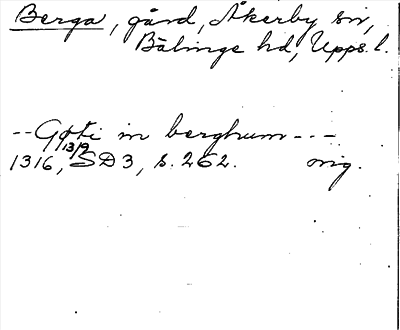 Berga, gård, Åkerby sn,
Bälinge hd, Upps. l.
--Goti in berghum---
13/9
1316, SD 3, s. 262. orig.